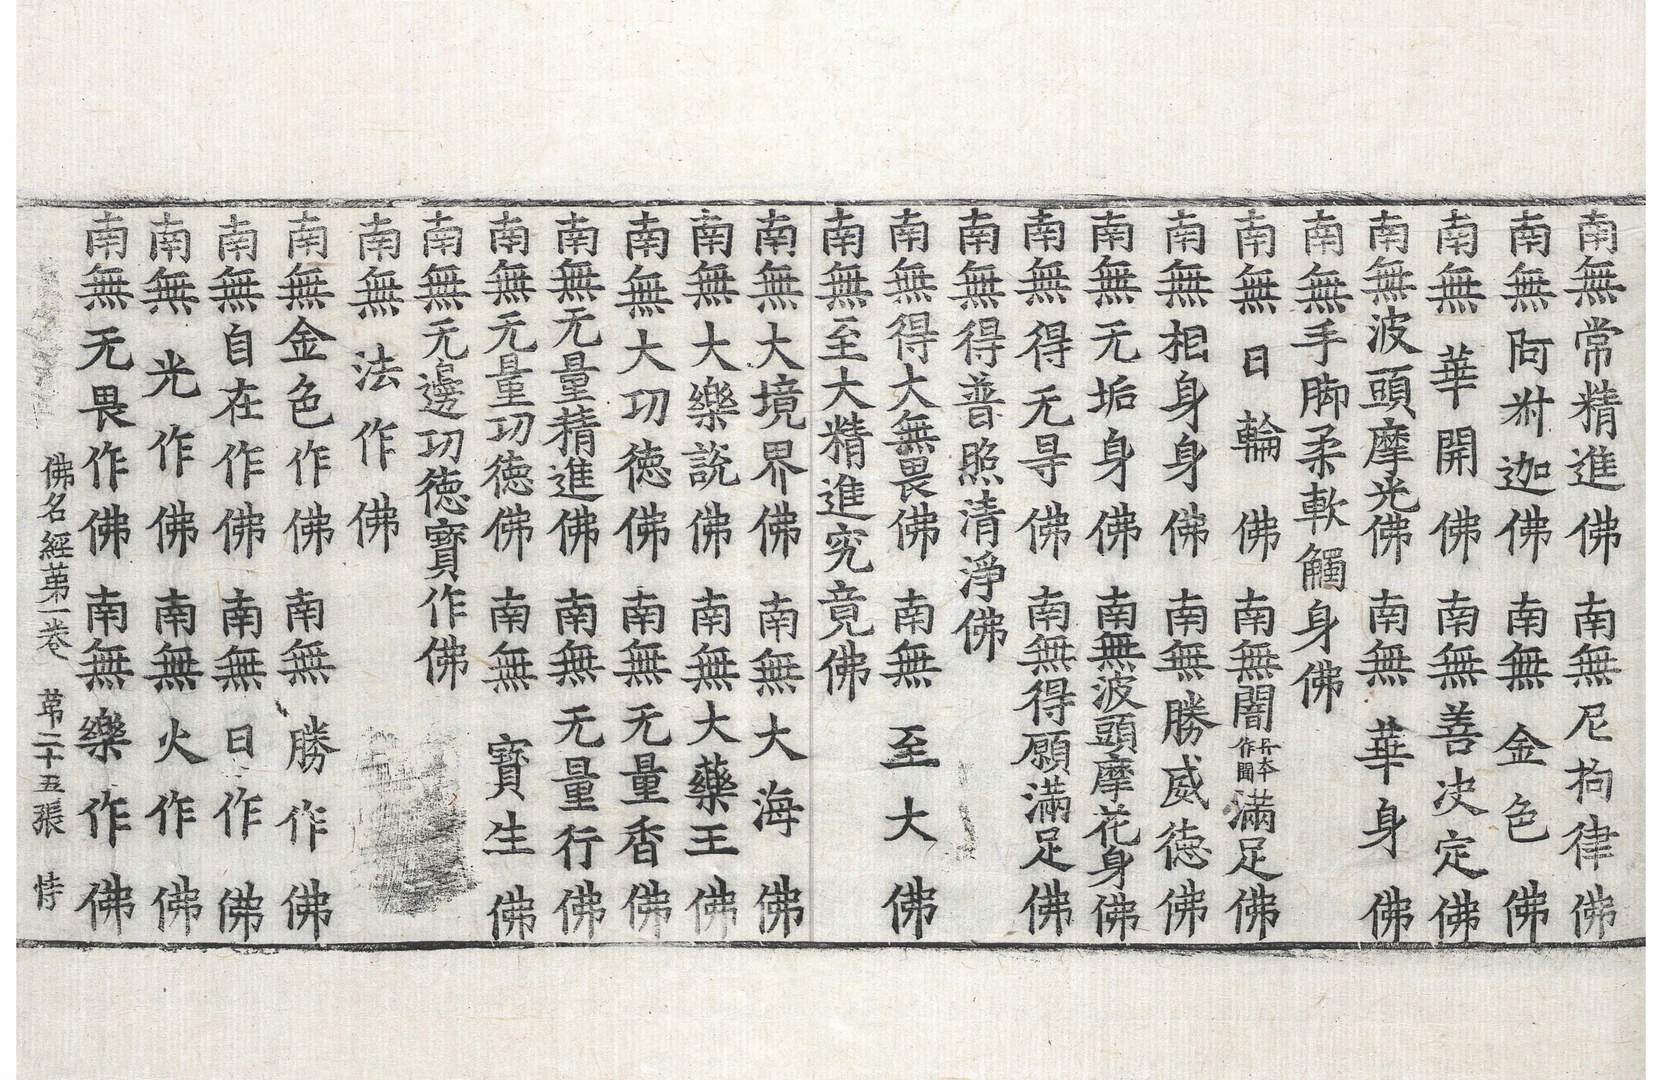 南無常精進佛 南無尼拘律佛
南無阿叔迦佛 南無金色佛
南無華開佛 南無善决定佛
南無波頭摩光佛 南無華身佛
南無手脚柔軟觸身佛
南無日輪佛 南無闇丹本作圓滿足佛
南無相身身佛 南無勝威德佛
南無无垢身佛 南無波頭摩花身佛
南無得无㝵佛 南無得願滿足佛
南無得普照清淨佛
南無得大無畏佛 南無至大佛
南無至大精進究竟佛
南無大境界佛 南無大海佛
南無大樂說佛 南無大藥王佛
南無大功德佛 南無无量香佛
南無无量精進佛 南無无量行佛
南無无量功德佛 南無寶生佛
南無无邊功德寶作佛
南無法作佛
南無金色作佛 南無勝作佛
南無自在作佛 南無日作佛
南無光作佛 南無火作佛
南無无畏作佛 南無樂作佛
佛名經苐一卷 苐二十五張 恃